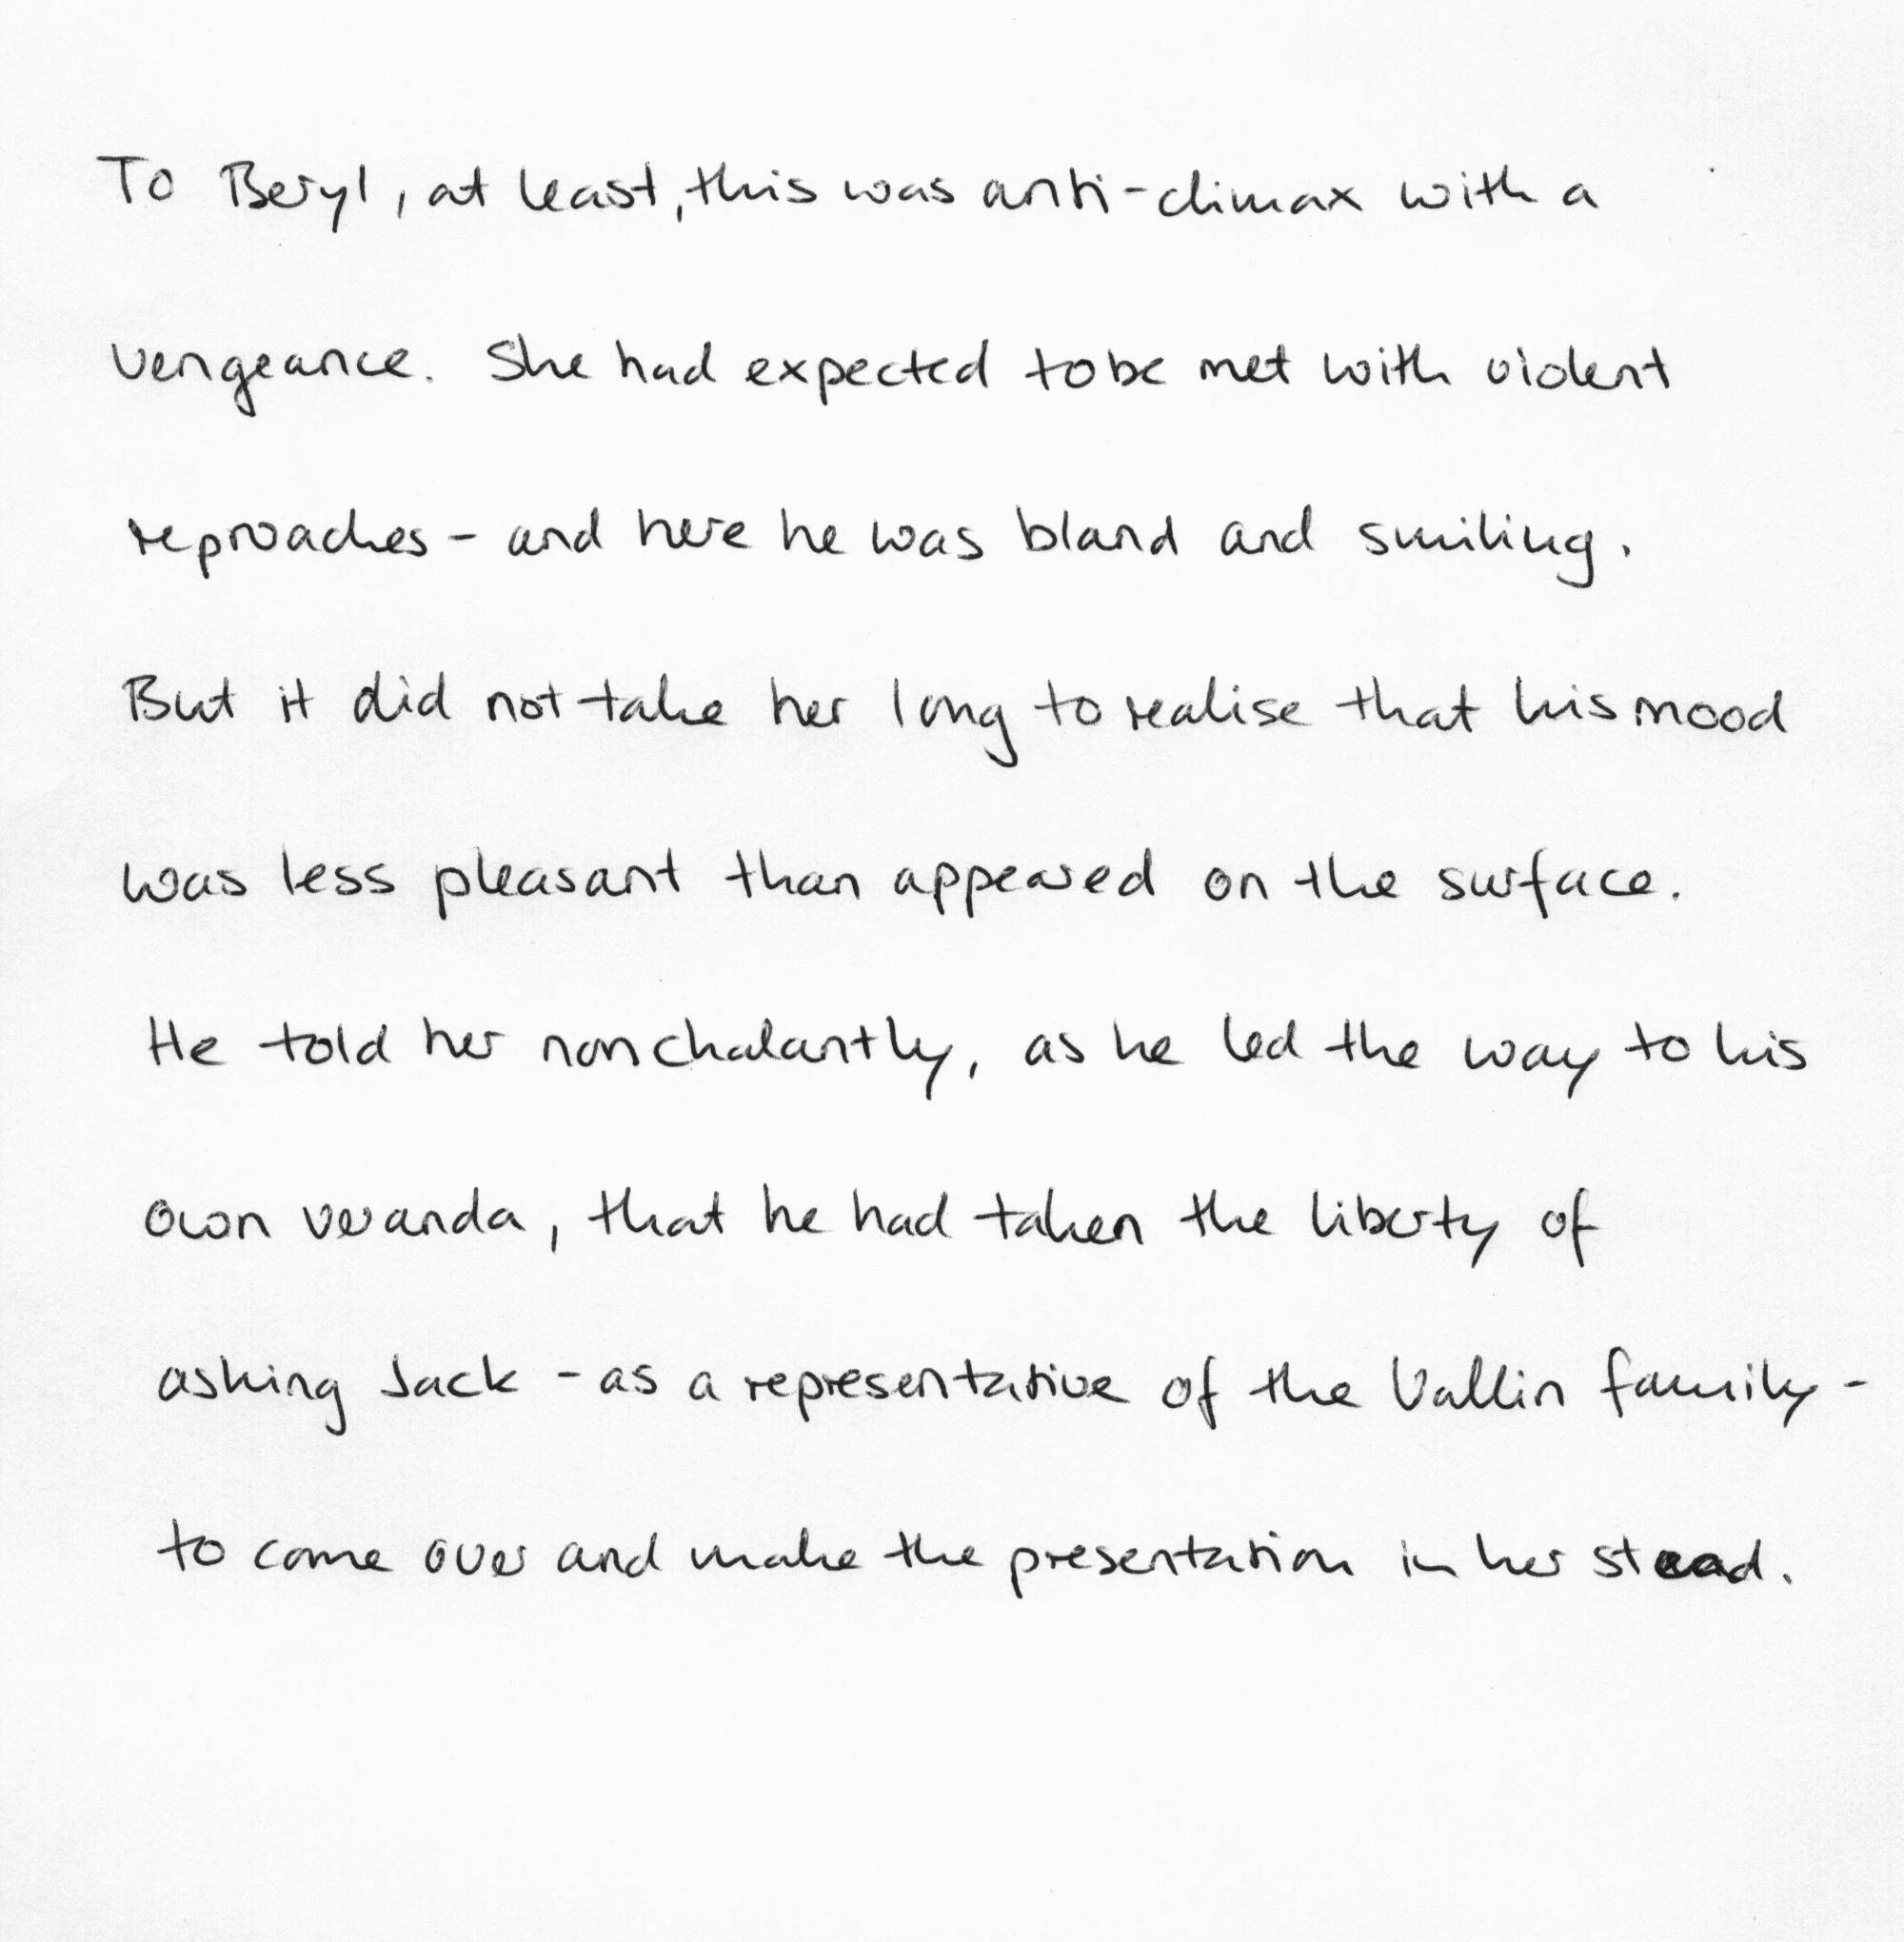 To Beryl, at least, this was anti-climax with a
vengeance. She had expected to be met with violent
reproaches - and here he was bland and smiling.
But it did not take her long to realise that his mood
was less pleasant than appeared on the surface.
He told her nonchalantly, as he led the way to his
own veranda, that he had taken the liberty of
asking Jack - as a representative of the Vallin family -
to come over and make the presentation in her stead.